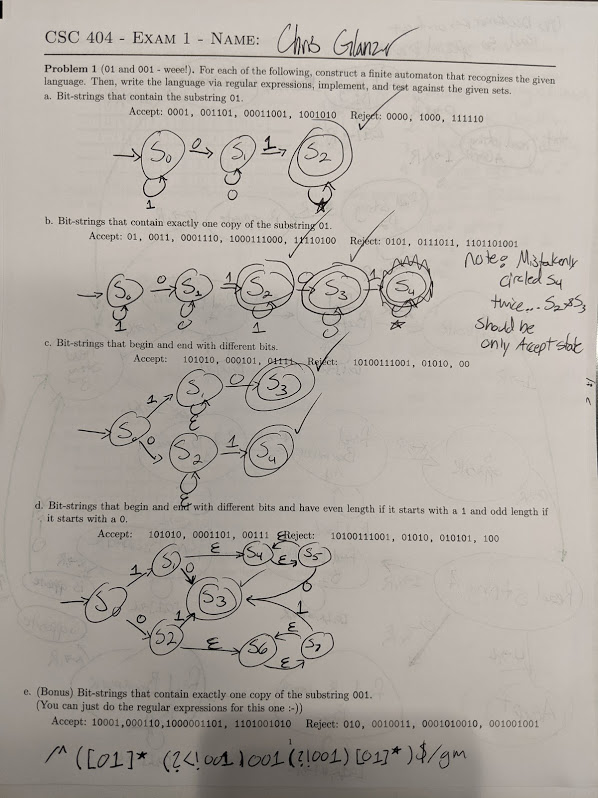 CSC 404 - EXAM 1 - NAME: Chris Glanzer
Problem 1 (01 and 001 - weee!). For each of the following, construct a finite automaton that recognizes the given
language. Then, write the language via regular expressions, implement, and test against the given sets.
a. Bit-strings that contain the substring 01.
Accept: 0001, 001101, 00011001, 1001010 Reject: 0000, 1000, 111110
S0 0 S1 1 S2
1 0 *
b. Bit-strings that contain exactly one copy of the substring 01.
Accept: 01, 0011, 0001110, 1000111000, 11110100 Reject: 0101, 0111011, 1101101001
Note: Mistakenly
circled S4
twice... S2 & S3
should be
only Accept state
S0 0 S1 1 S2 0 S3 1 S4
1 0 1 0 *
c. Bit-strings that begin and end with different bits.
Accept: 101010, 000101, 01111 Reject: 10100111001, 01010, 00
S1 0 S3
1 ε
S0
0
S2 1 S4
ε
d. Bit-strings that begin and end with different bits and have even length if it starts with a 1 and odd length if
it starts with a 0.
Accept: 101010, 0001101, 00111 Reject: 10100111001, 01010, 010101, 100
S1 ε S4 ε ε S5
1 0
S0 S3 0
0 1 1
S2 ε S6 ε ε S7
e. (Bonus) Bit-strings that contain exactly one copy of the substring 001.
(You can just do the regular expressions for this one :-))
Accept: 10001,000110,1000001101, 1101001010 Reject: 010, 0010011, 0001010010, 001001001
1
/^([01]* (?<!001)001(?!001)[01]*)$/gm